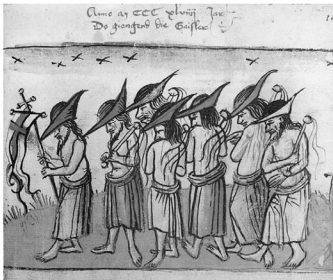 Anno dn CCC xlviiij Jar
Do giengend die Geisler